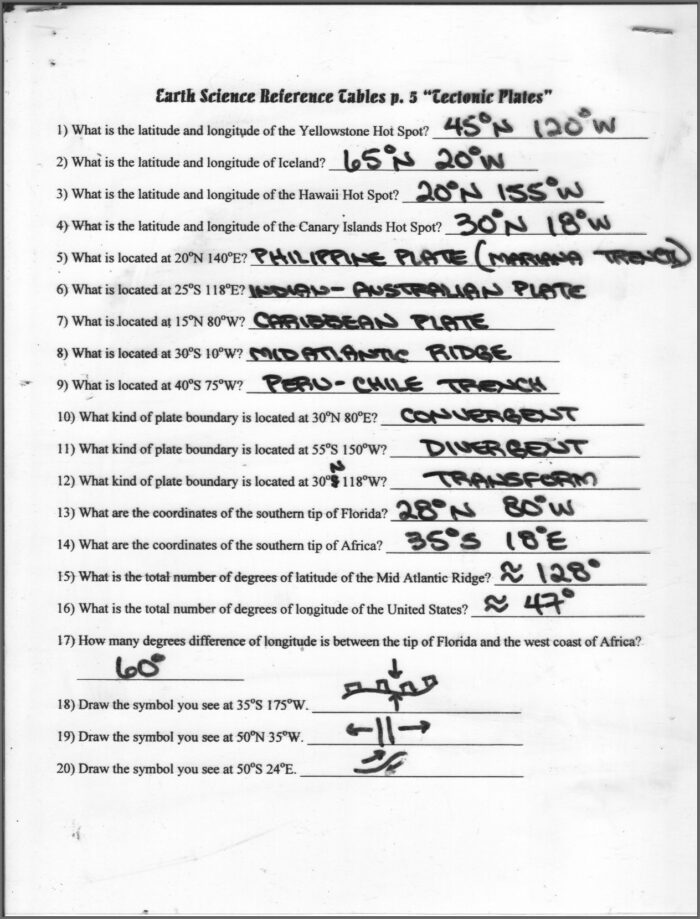 Earth Science Reference Tables p. 5 "Tectonic Plates"
1) What is the latitude and longitude of the Yellowstone Hot Spot? 45°N 120°W
2) What is the latitude and longitude of Iceland? 65°N 20°W
3) What is the latitude and longitude of the Hawaii Hot Spot? 20°N 155°W
4) What is the latitude and longitude of the Canary Islands Hot Spot? 30°N 18°W
5) What is located at 20°N 140°E? PHILIPPINE PLATE (MARIANA TRENCH)
6) What is located at 25°S 118°E? INDIAN-AUSTRALIAN PLATE
7) What is located at 15°N 80°W? CARIBBEAN PLATE
8) What is located at 30°S 10°W? MID ATLANTIC RIDGE
9) What is located at 40°S 75°W? PERU-CHILE TRENCH
10) What kind of plate boundary is located at 30°N 80°E? CONVERGENT
11) What kind of plate boundary is located at 55°S 150°W? DIVERGENT
12) What kind of plate boundary is located at 30°N 118°W? TRANSFORM
13) What are the coordinates of the southern tip of Florida? 28°N 80°W
14) What are the coordinates of the southern tip of Africa? 35°S 18°E
15) What is the total number of degrees of latitude of the Mid Atlantic Ridge? ≈ 128°
16) What is the total number of degrees of longitude of the United States? ≈ 47°
17) How many degrees difference of longitude is between the tip of Florida and the west coast of Africa?
60°
18) Draw the symbol you see at 35°S 175°W.
19) Draw the symbol you see at 50°N 35°W.
20) Draw the symbol you see at 50°S 24°E.